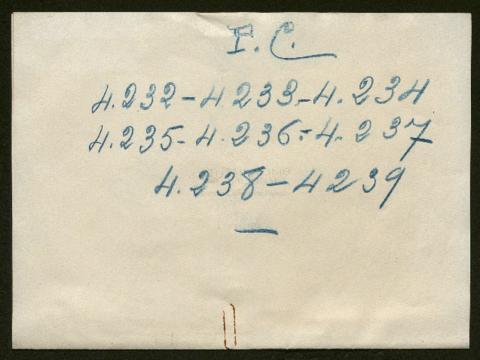 I. C.
4.232-4233-4.234
4.235-4.236-4.237
4.238-4239